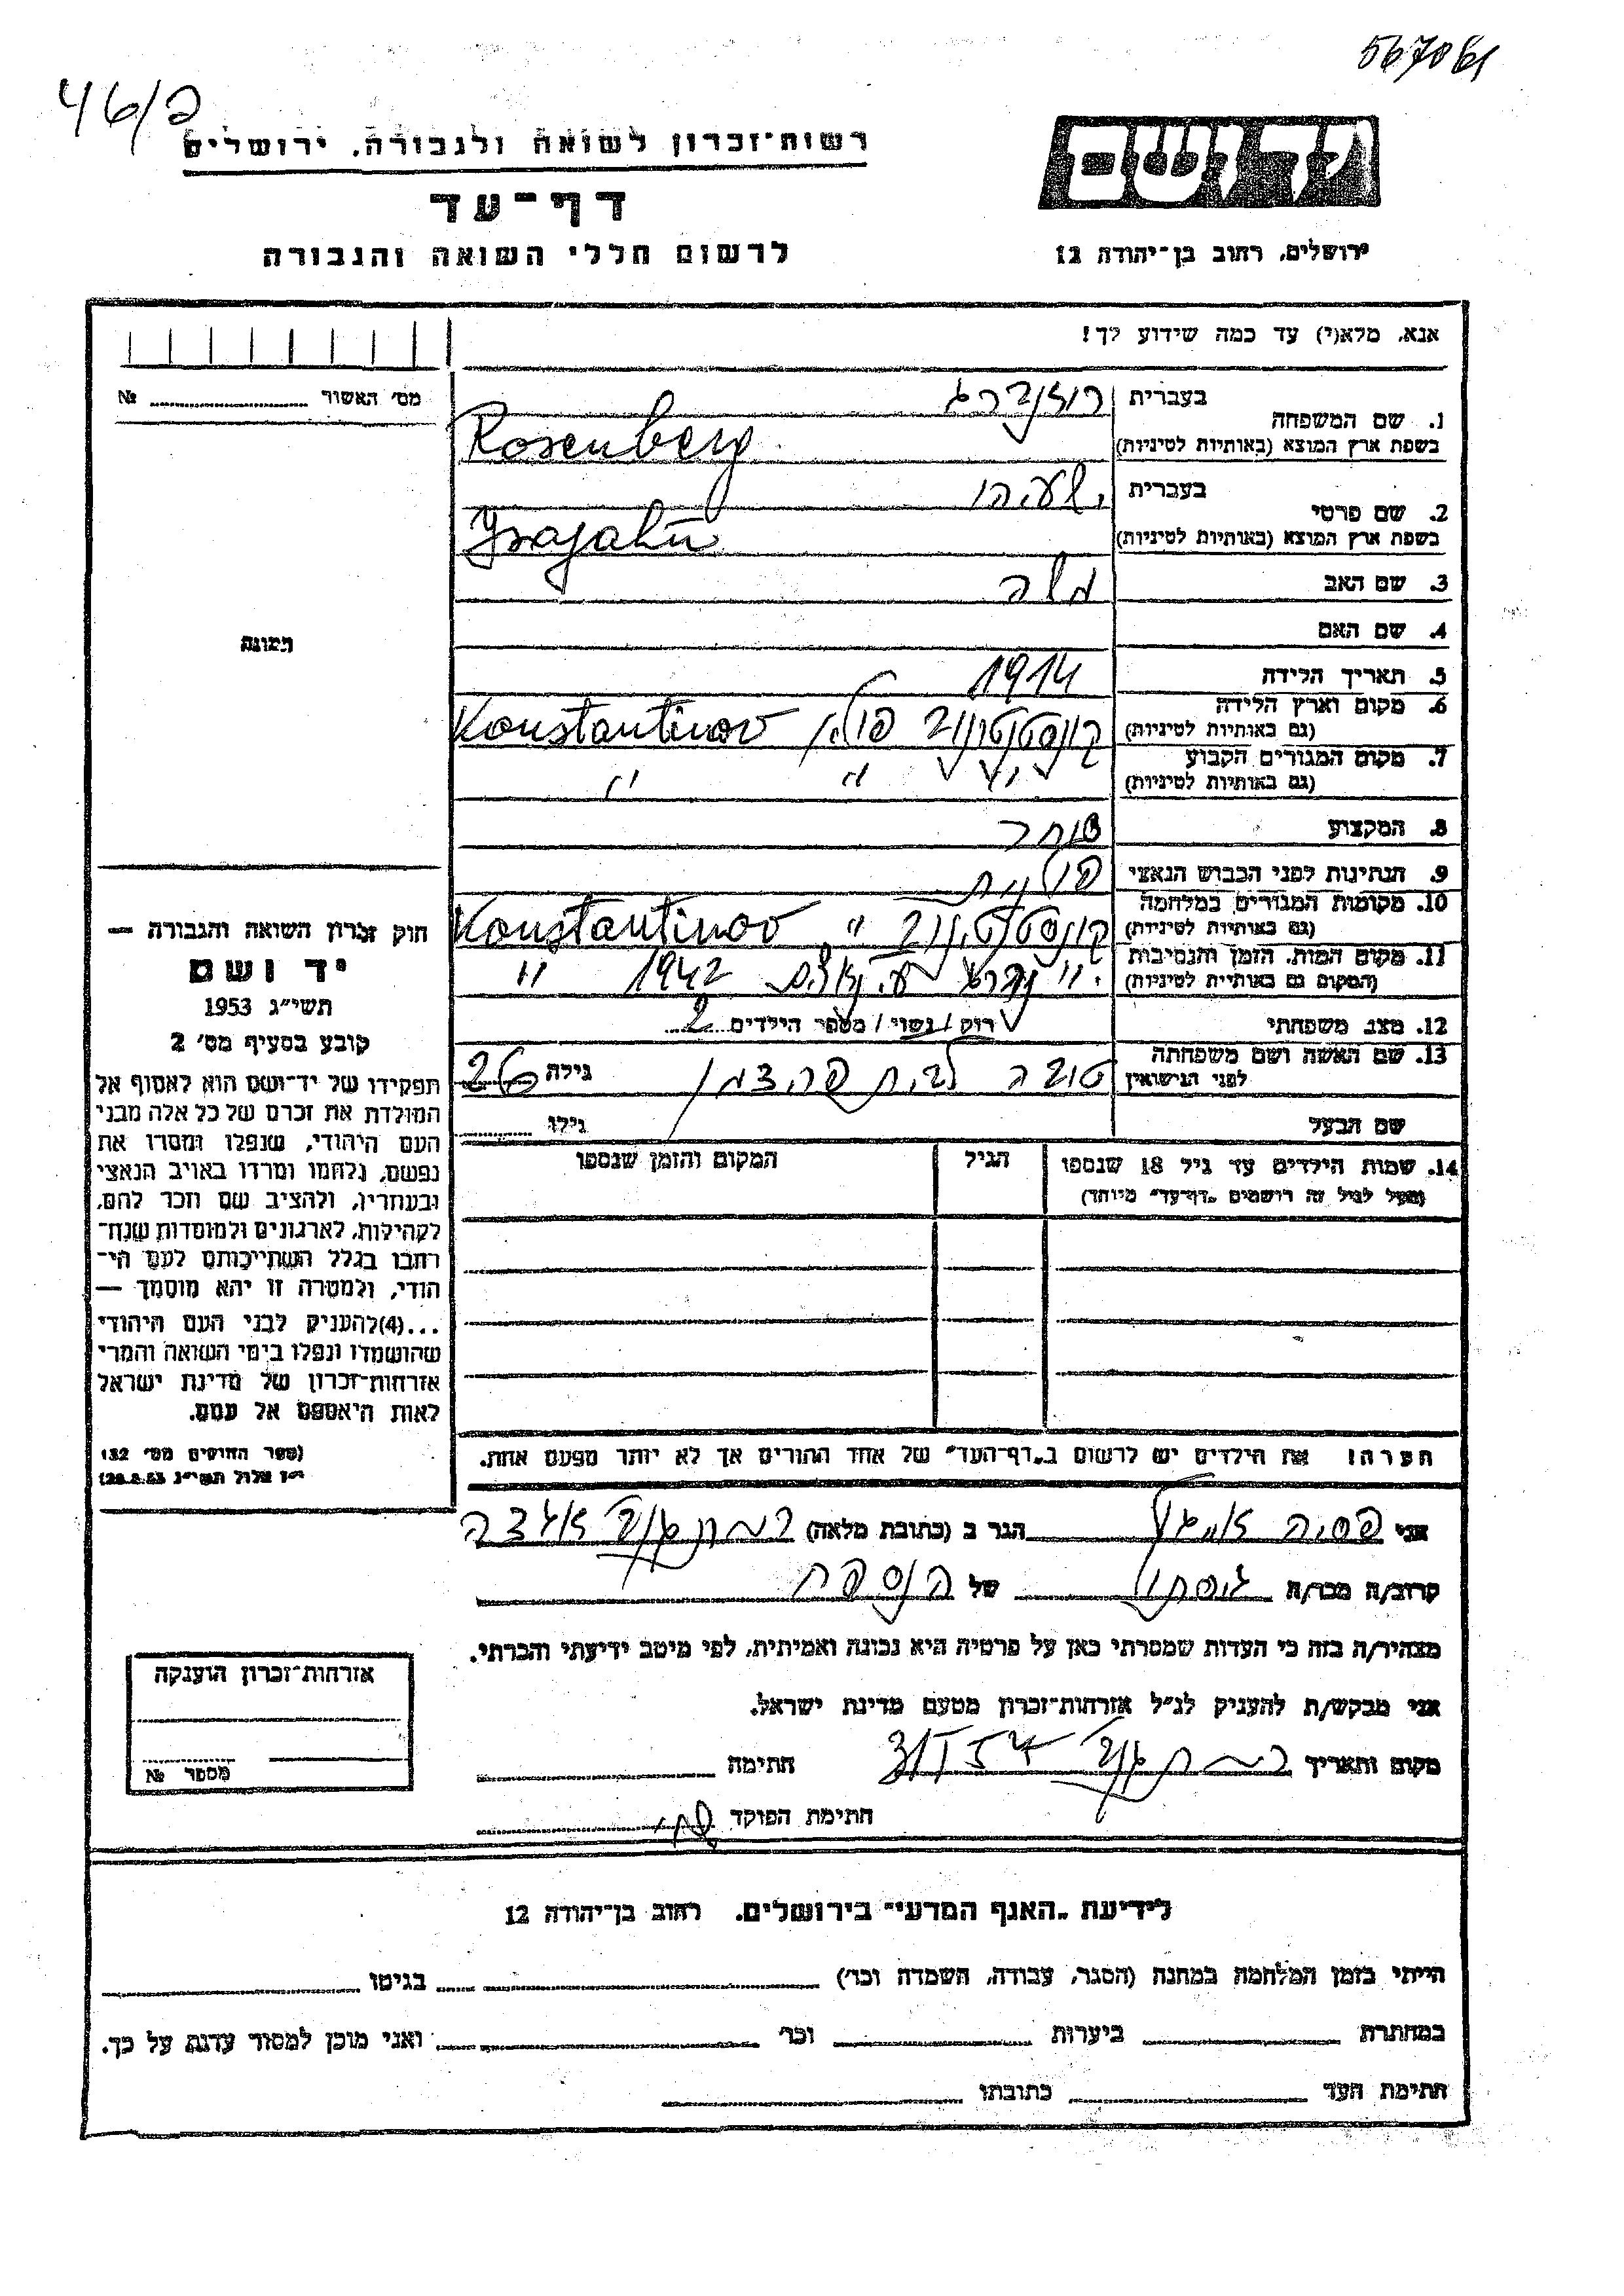 567061
46/כ
רשות־זכרון לשואה ולגבורה, ירושלים
יד ושם
דף־עד
לרשום חללי השואה והגבורה
ירושלים, רחוב בן־יהודה 12
אנא, מלא(י) עד כמה שידוע לך!
מס' האשור № 
1. שם המשפחה
בעברית רוזנברג
בשפת ארץ המוצא (באותיות לטיניות) Rosenberg
2. שם פרטי
בעברית ישעיהו
בשפת ארץ המוצא (באותיות לטיניות) Ysajahu
3. שם האב משה
4. שם האם
5. תאריך הלידה 1914
6. מקום וארץ הלידה (גם באותיות לטיניות) קונסטנטינוב פולין Konstantinov
7. מקום המגורים הקבוע (גם באותיות לטיניות) " " "
8. המקצוע סוחר
9. הנתינות לפני הכבוש הנאצי פולנית
10. מקומות המגורים במלחמה (גם באותיות לטיניות) קונסטנטינוב " Konstantinov
11. מקום המות, הזמן והנסיבות (המקום גם באותיות לטיניות) " 1942 "
12. מצב משפחתי רווק / נשוי / מספר הילדים 2
13. שם האשה ושם משפחתה לפני הנישואין טובה לבית גילה 26
שם הבעל גילו
14. שמות הילדים עד גיל 18 שנספו הגיל המקום והזמן שנספו
(מעל לגיל זה רושמים „דף־עד" מיוחד)
הערה! את הילדים יש לרשום ב„דף־העד" של אחד ההורים אך לא יותר מפעם אחת.
תמונה
חוק זכרון השואה והגבורה —
יד ושם
תשי"ג 1953
קובע בסעיף מס' 2
תפקידו של יד־ושם הוא לאסוף אל
המולדת את זכרם של כל אלה מבני
העם היהודי, שנפלו ומסרו את
נפשם, נלחמו ומרדו באויב הנאצי
ובעוזריו, ולהציב שם וזכר להם,
לקהילות, לארגונים ולמוסדות שנח־
רבו בגלל השתייכותם לעם הי־
הודי, ולמטרה זו יהא מוסמך —
...(4) להעניק לבני העם היהודי
שהושמדו ונפלו בימי השואה והמרי
אזרחות־זכרון של מדינת ישראל
לאות היאספם אל עמם.
(ספר החוקים מס' 132
י"ז אלול תשי"ג 28.8.53)
אני פסיה הגר ב (כתובת מלאה) רמת גן
קרוב/ה מכר/ה גיסתו של הנספה
מצהיר/ה בזה כי העדות שמסרתי כאן על פרטיה היא נכונה ואמיתית, לפי מיטב ידיעתי והכרתי.
אני מבקש/ת להעניק לנ"ל אזרחות־זכרון מטעם מדינת ישראל.
מקום ותאריך רמת גן חתימה
חתימת הפוקד
אזרחות־זכרון הוענקה
מספר №
לידיעת „האגף המדעי" בירושלים. רחוב בן־יהודה 12
הייתי בזמן המלחמה במחנה (הסגר, עבודה, השמדה וכו') בגיטו
במחתרת ביערות וכו' ואני מוכן למסור עדות על כך.
חתימת העד כתובתו